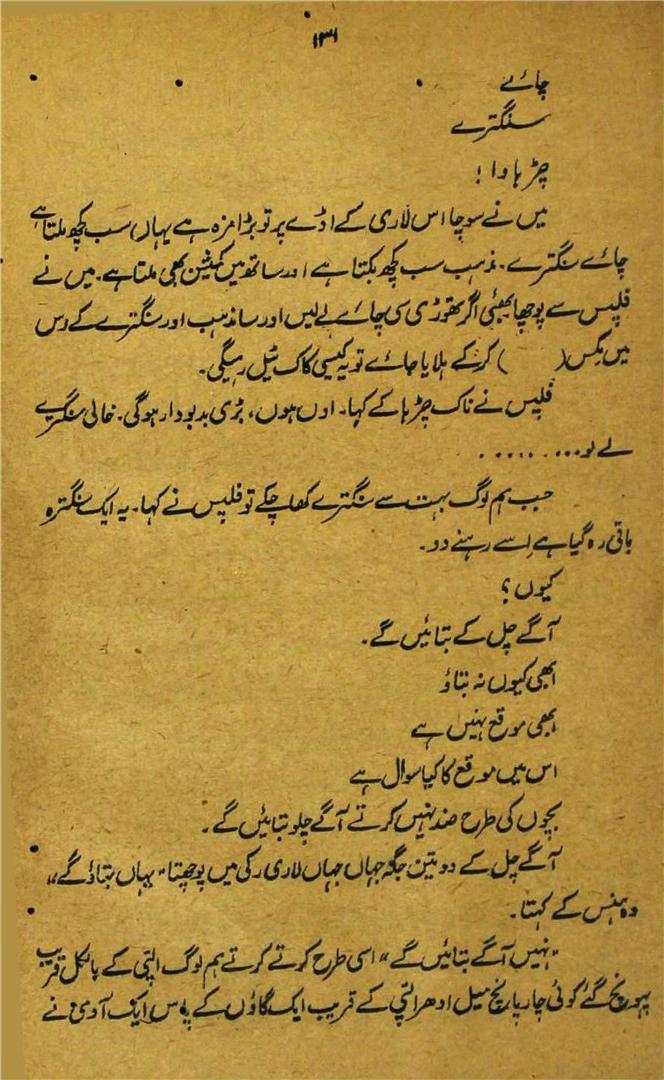 ۱۳۱
چائے
سنگترے
چڑہاوا!
میں نے سوچا اس لاری کے اڈے پر تو بڑا مزہ ہے یہاں سب کچھ ملتا ہے
چائے سنگترے۔ مذہب سب کچھ بکتا ہے اور ساتھ میں کمیشن بھی ملتا ہے۔ میں نے
فلپس سے پوچھا بھئی اگر تھوڑی سی چائے لے لیں اور ساتھ مذہب اور سنگترے کے رس
میں مکس (          ) کرکے ہلایا جائے تو یہ کیسی کاک ٹیل رہیگی۔
فلپس نے ناک چڑہا کے کہا۔ اوں ہوں، بڑی بدبودار ہوگی۔ خالی سنگترے
لے لو..........
جب ہم لوگ بہت سے سنگترے کھا چکے تو فلپس نے کہا۔ یہ ایک سنگترہ
باقی رہ گیا ہے اِسے رہنے دو۔
کیوں؟
آگے چل کے بتائیں گے۔
ابھی کیوں نہ بتاؤ
ابھی موقع نہیں ہے
اس میں موقع کا کیا سوال ہے
بچوں کی طرح ضد نہیں کرتے آگے چلو بتائیں گے۔
آگے چل کے دو تین جگہ جہاں جہاں لاری رکی میں پوچھتا "یہاں بتاؤ گے"
وہ ہنس کے کہتا۔
"نہیں آگے بتائیں گے" اسی طرح کرتے کرتے ہم لوگ الپّی کے بالکل قریب
پہونچ گئے، کوئی چار پانچ میل ادھر الپّی کے قریب ایک گاؤں کے پاس ایک آدمی نے